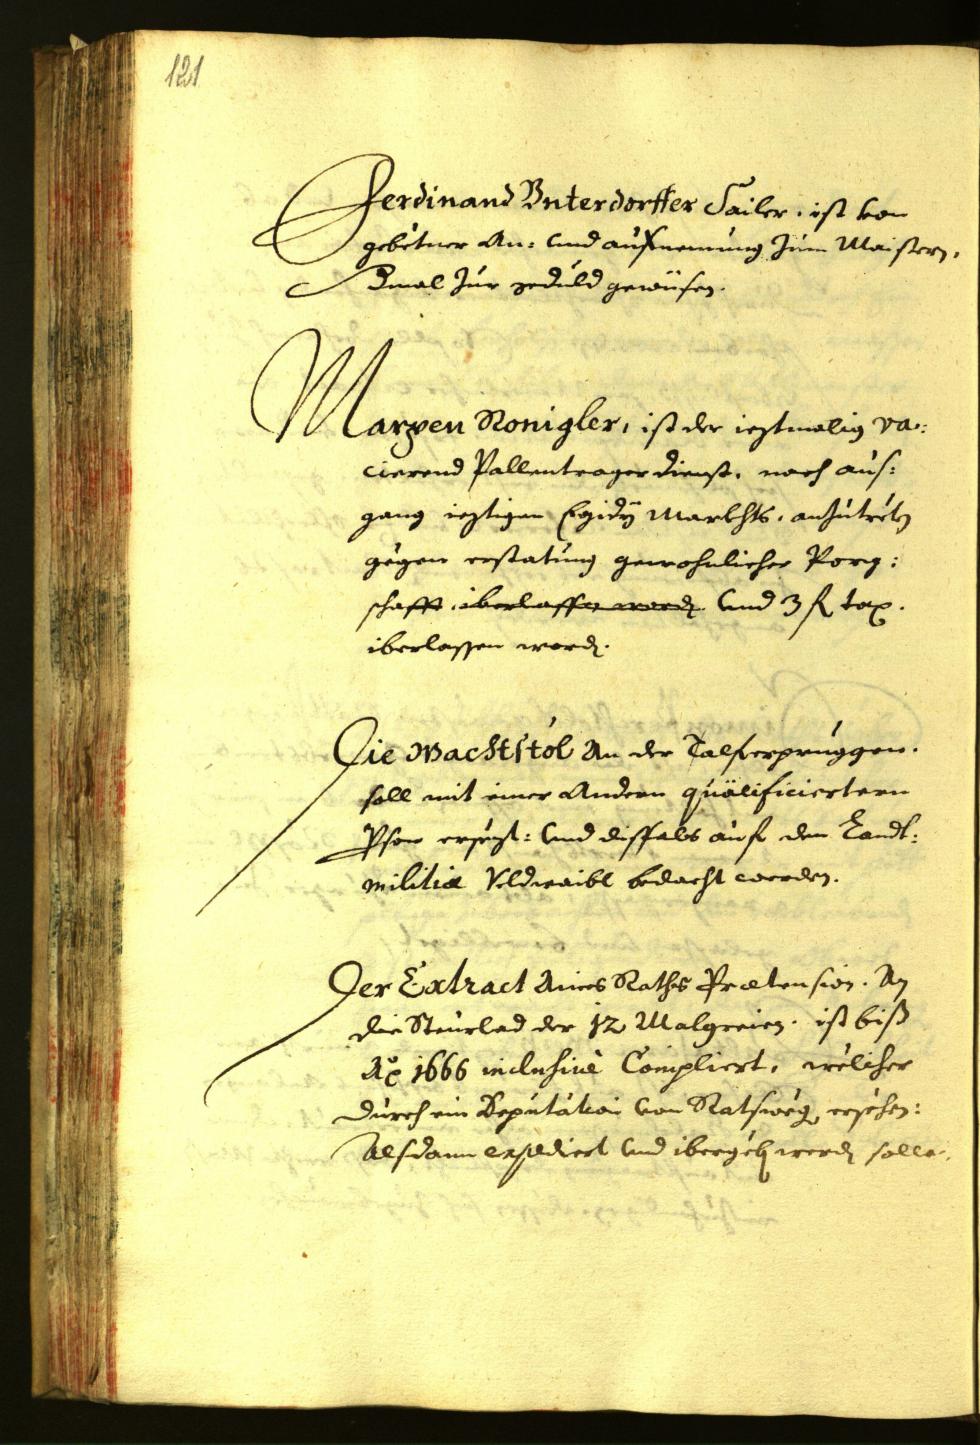 121
Ferdinand Vnterdorffer Sailer, ist von
gebetner An: und aufnemung zum Maistern,
dmal zur geduld gewisen.
Marxen Ronigler, ist der ieztmalig va:
cierend Pallentrager dienst, nach aus:
gang ieztigen Egidÿ Marckhts, anzutreten
gegen erstatung gewohnlicher Porg:
schafft, iberlassen worden und 3 f tax.
iberlassen worden.
Die Wachtstöl An der Talferpruggen.
soll mit einer Andern qualificiertern
Pson ersezt: und dissfals auf den Landt:
militiæ Veldwaibl bedacht werden.
Der Extract Aines Raths Prætension. An
die Steurlad der 12 Malgreien. ist biß
Aõ 1666 inclusivè Compliert, welicher
durch ein Deputation von Ratsweg ersehen:
Alsdann expediert und ibergeben werden solle.